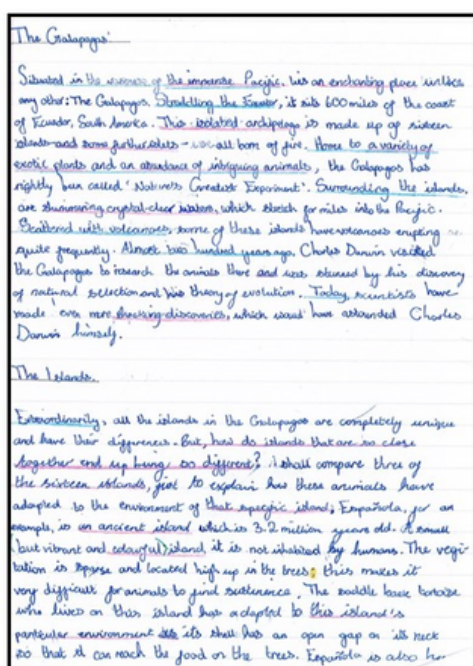 The Galapagos
Situated in the vastness of the immense Pacific, lies an enchanting place unlike
any other: The Galapagos. Straddling the Equator, it sits 600 miles of the coast
of Ecuador, South America. This isolated archipelago is made up of sixteen
islands and some further islets - all born of fire. Home to a variety of
exotic plants and an abundance of intriguing animals, the Galapagos has
rightly been called 'Nature's Greatest Experiment'. Surrounding the islands,
are shimmering crystal-clear waters, which stretch for miles into the Pacific.
Scattered with volcanoes, some of these islands have volcanoes erupting
quite frequently. Almost two hundred years ago, Charles Darwin visited
the Galapagos to research the animals there and was stunned by his discovery
of natural selection and his theory of evolution. Today, scientists have
made even more discoveries, which would have astounded Charles
Darwin himself.
The Islands.
Extraordinarily, all the islands in the Galapagos are completely unique
and have their differences. But, how do islands that are so close
together end up being so different? I shall compare three of
the sixteen islands, just to explain how these animals have
adapted to the environment of that specific island. Española, for an
example, is an ancient island which is 3.2 million years old. A small
(but vibrant and colourful) island it is not inhabited by humans. The vegi
tation is sparse and located high up in the trees; this makes it
very difficult for animals to find sustenance. The saddle back tortoise
who lives on this island has adapted to this island's
particular environment its shell has an open gap on its neck
so that it can reach the food on the trees. Española is also